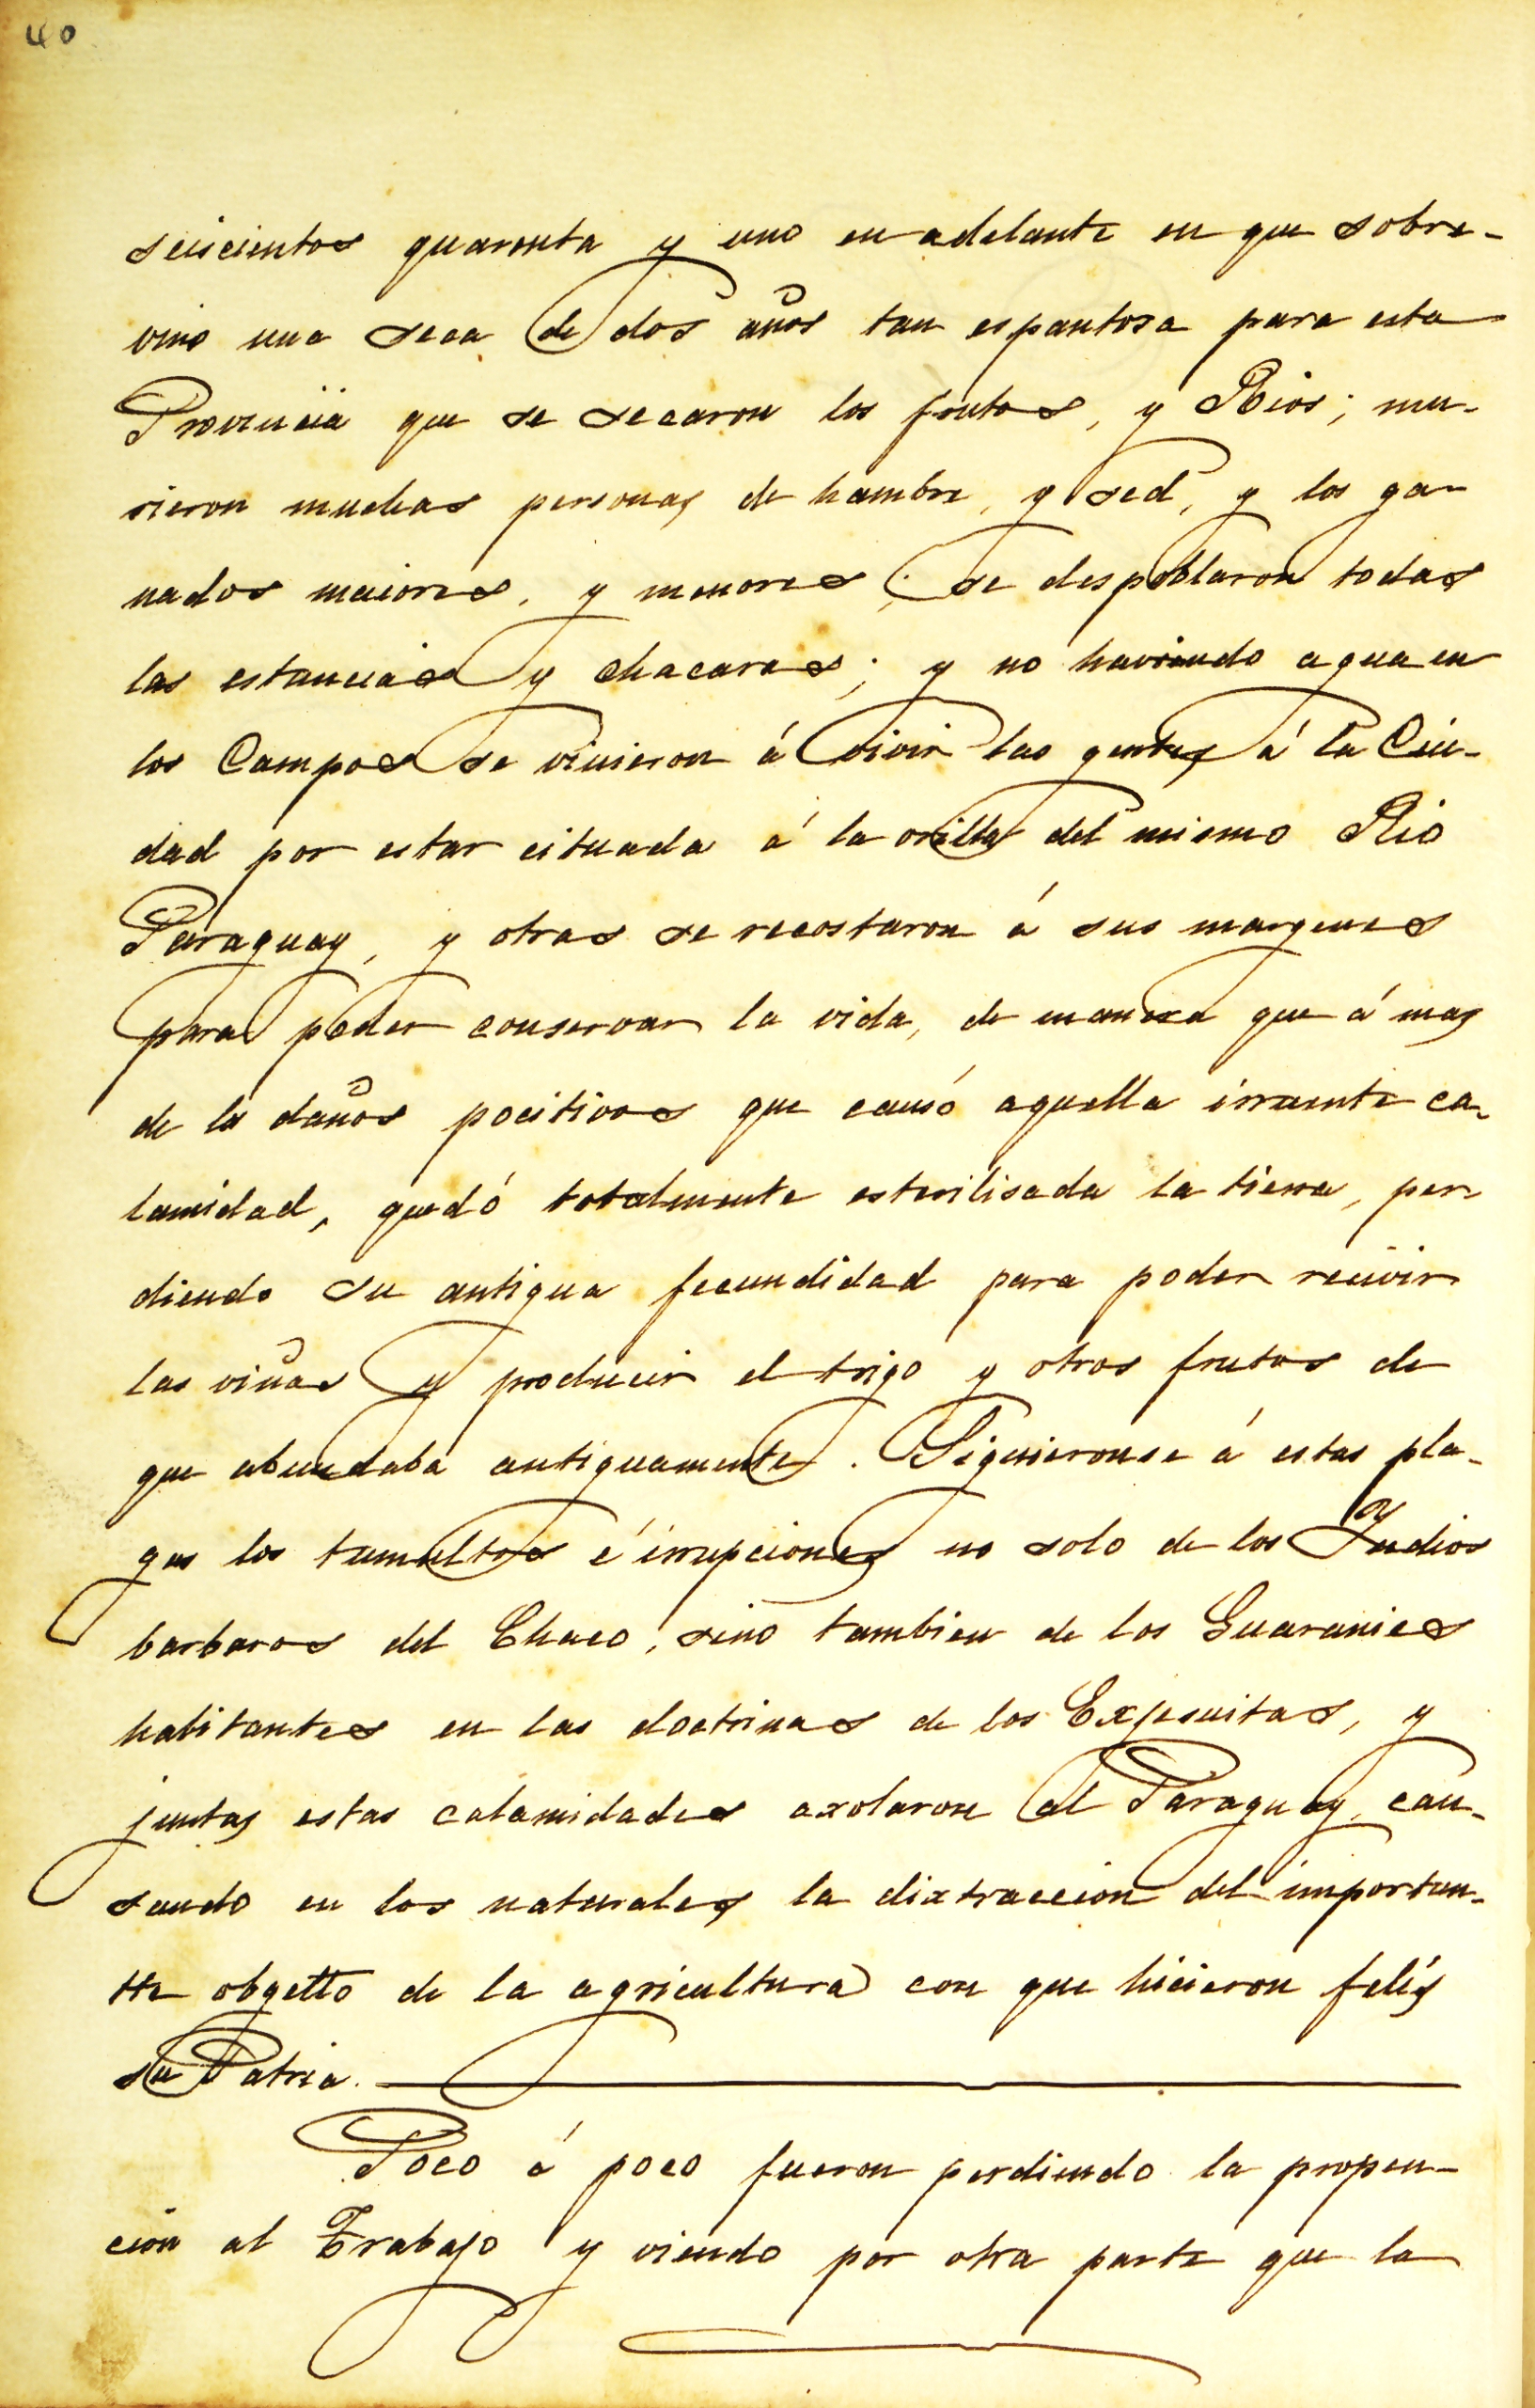 40
seiscientos quarenta y uno en adelante en que sobre-
vino una seca de dos años tan espantosa para esta
Provincia que se secaron los frutos, y Rios; mu-
rieron muchas personas de hambre, y sed, y los ga-
nados maiores, y menores; se despoblaron todas
las estancias y chacaras; y no haviendo agua en
los Campos se vinieron á vivir las gentes á la Ciu-
dad por estar cituada á la orilla del mismo Rio
Paraguay, y otras se recostaron á sus margenes
para poder conservar la vida, de manera que á mas
de los daños pocitivos que causó aquella ca-
lamidad, quedó totalmente esterilisada la tierra, per-
diendo su antigua fecundidad para poder recivir
las viñas y producir el trigo y otros frutos de
que abundaba antiguamente. Siguieronse á estas pla-
gas los tumultos é irrupciones no solo de los Yndios
barbaros del Chaco, sino tambien de los Guaranies
habitantes en las doctrinas de los Exjesuitas, y
juntas estas calamidades axolaron al Paraguay, cau-
sando en los naturales la dixtraccion del importan-
tte obgetto de la agricultura con que hicieron felís
su Patria.
Poco á poco fueron perdiendo la propen-
cion al Trabajo y viendo por otra parte que la